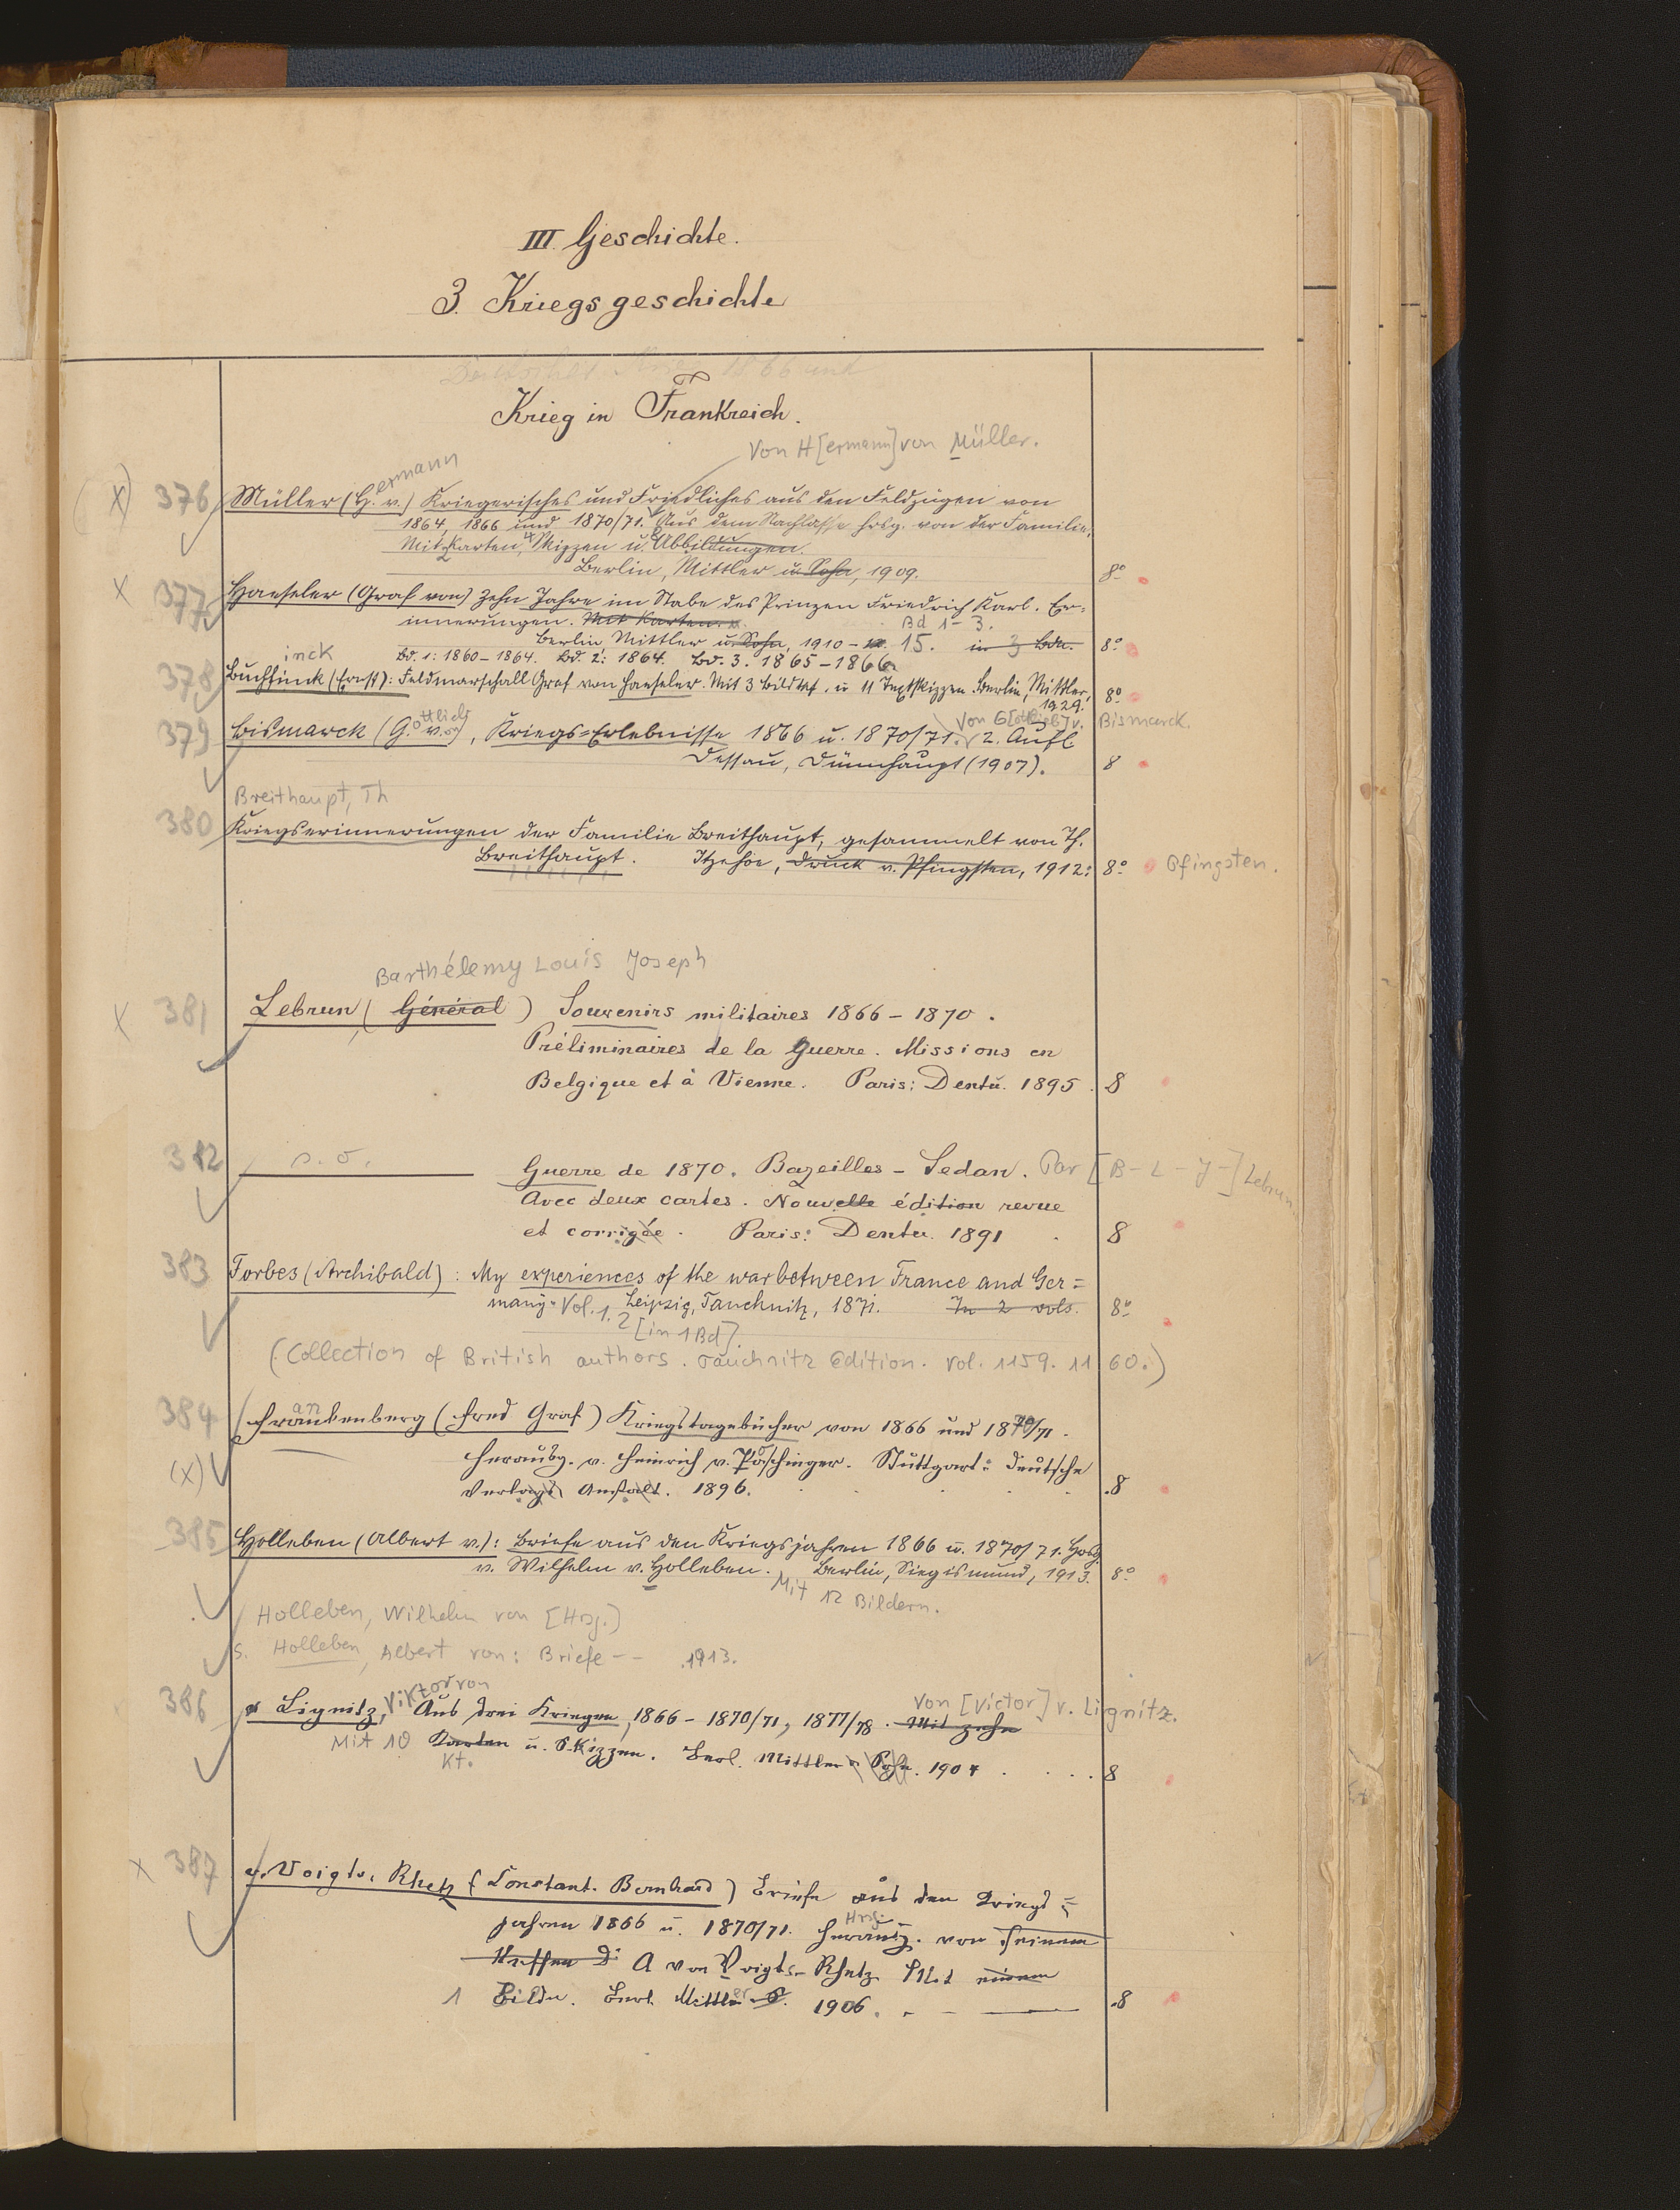 III. Geschichte.
3. Kriegsgeschichte
1866 und
Krieg in Frankreich.
Von H[ermann] von Müller.
ermann
(X) 376 Müller (H. v.) Kriegerisches und Friedliches aus den Feldzügen von
1864, 1866 und 1870/71. Aus dem Nachlasse hrsg. von der Familie.
Mit Karten, Skizzen u. Abbildungen.
Berlin, Mittler u. Sohn, 1909. 8°
X 377 Haeseler (Graf von) Zehn Jahre im Stabe des Prinzen Friedrich Karl. Er=
innerungen. Mit Karten. Bd 1-3.
Berlin, Mittler u. Sohn, 1910-12. 15. in 3 Bdn. 8°
inck Bd. 1: 1860-1864. Bd. 2: 1864. Bd. 3. 1865-1866.
378 Buchfinck (Ernst): Feldmarschall Graf von Haeseler. Mit 3 Bildtaf. u. 11 Textskizzen. Berlin, Mittler, 8°
1929.
ottlieb von Von G[ottlieb] v. Bismarck.
379 Bismarck (G. v.), Kriegs=Erlebnisse 1866 u. 1870/71. 2. Aufl.
Dessau, Dünnhaupt (1907). 8
Breithaupt, Th
380 Kriegserinnerungen der Familie Breithaupt, gesammelt von Th.
Breithaupt. Itzehoe, Druck v. Pfingsten, 1912. 8° Pfingsten.
Barthélemy Louis Joseph
X 381 Lebrun (Général) Souvenirs militaires 1866-1870.
Préliminaires de la guerre. Missions en
Belgique et à Vienne. Paris: Dentu. 1895. 8
382 s. o. Guerre de 1870. Bazeilles-Sedan. Par [B-L-J-] Lebrun
Avec deux cartes. Nouvelle édition revue
et corrigée. Paris: Dentu. 1891. 8
383 Forbes (Archibald): My experiences of the war between France and Ger=
many. Vol. 1. 2 Leipzig, Tauchnitz, 1871. In 2 vols. 8°
[in 1 Bd].
(Collection of British authors. Tauchnitz Edition. Vol. 1159. 1160.)
an
384 Frankenberg (Fred Graf) Kriegstagebücher von 1866 und 1870/71.
Herausg. v. Heinrich v. Poschinger. Stuttgart: Deutsche
(X) Verlags Anstalt. 1896. 8
385 Holleben (Albert v.): Briefe aus den Kriegsjahren 1866 u. 1870/71. Hrsg.
v. Wilhelm v. Holleben. Berlin, Siegismund, 1913. 8°
Mit 12 Bildern.
Holleben, Wilhelm von [Hrsg.]
s. Holleben, Albert von: Briefe -- 1913.
Viktor von Von [Victor] v. Lignitz.
386 v Lignitz, Aus drei Kriegen, 1866-1870/71, 1877/78. Mit zehn
Mit 10 Karten u. Skizzen. Berl. Mittler u. Sohn. 1904 . . . . 8
Kt.
X 387 v. Voigts-Rhetz (Constant. Bernhard) Briefe aus den Kriegs=
jahren 1866 u. 1870/71. Hrsg. Herausg. von seinem
Neffen D: A von Voigts-Rhetz. Mit einem
1 Bilde. Berl. Mittler S. 1906. 8